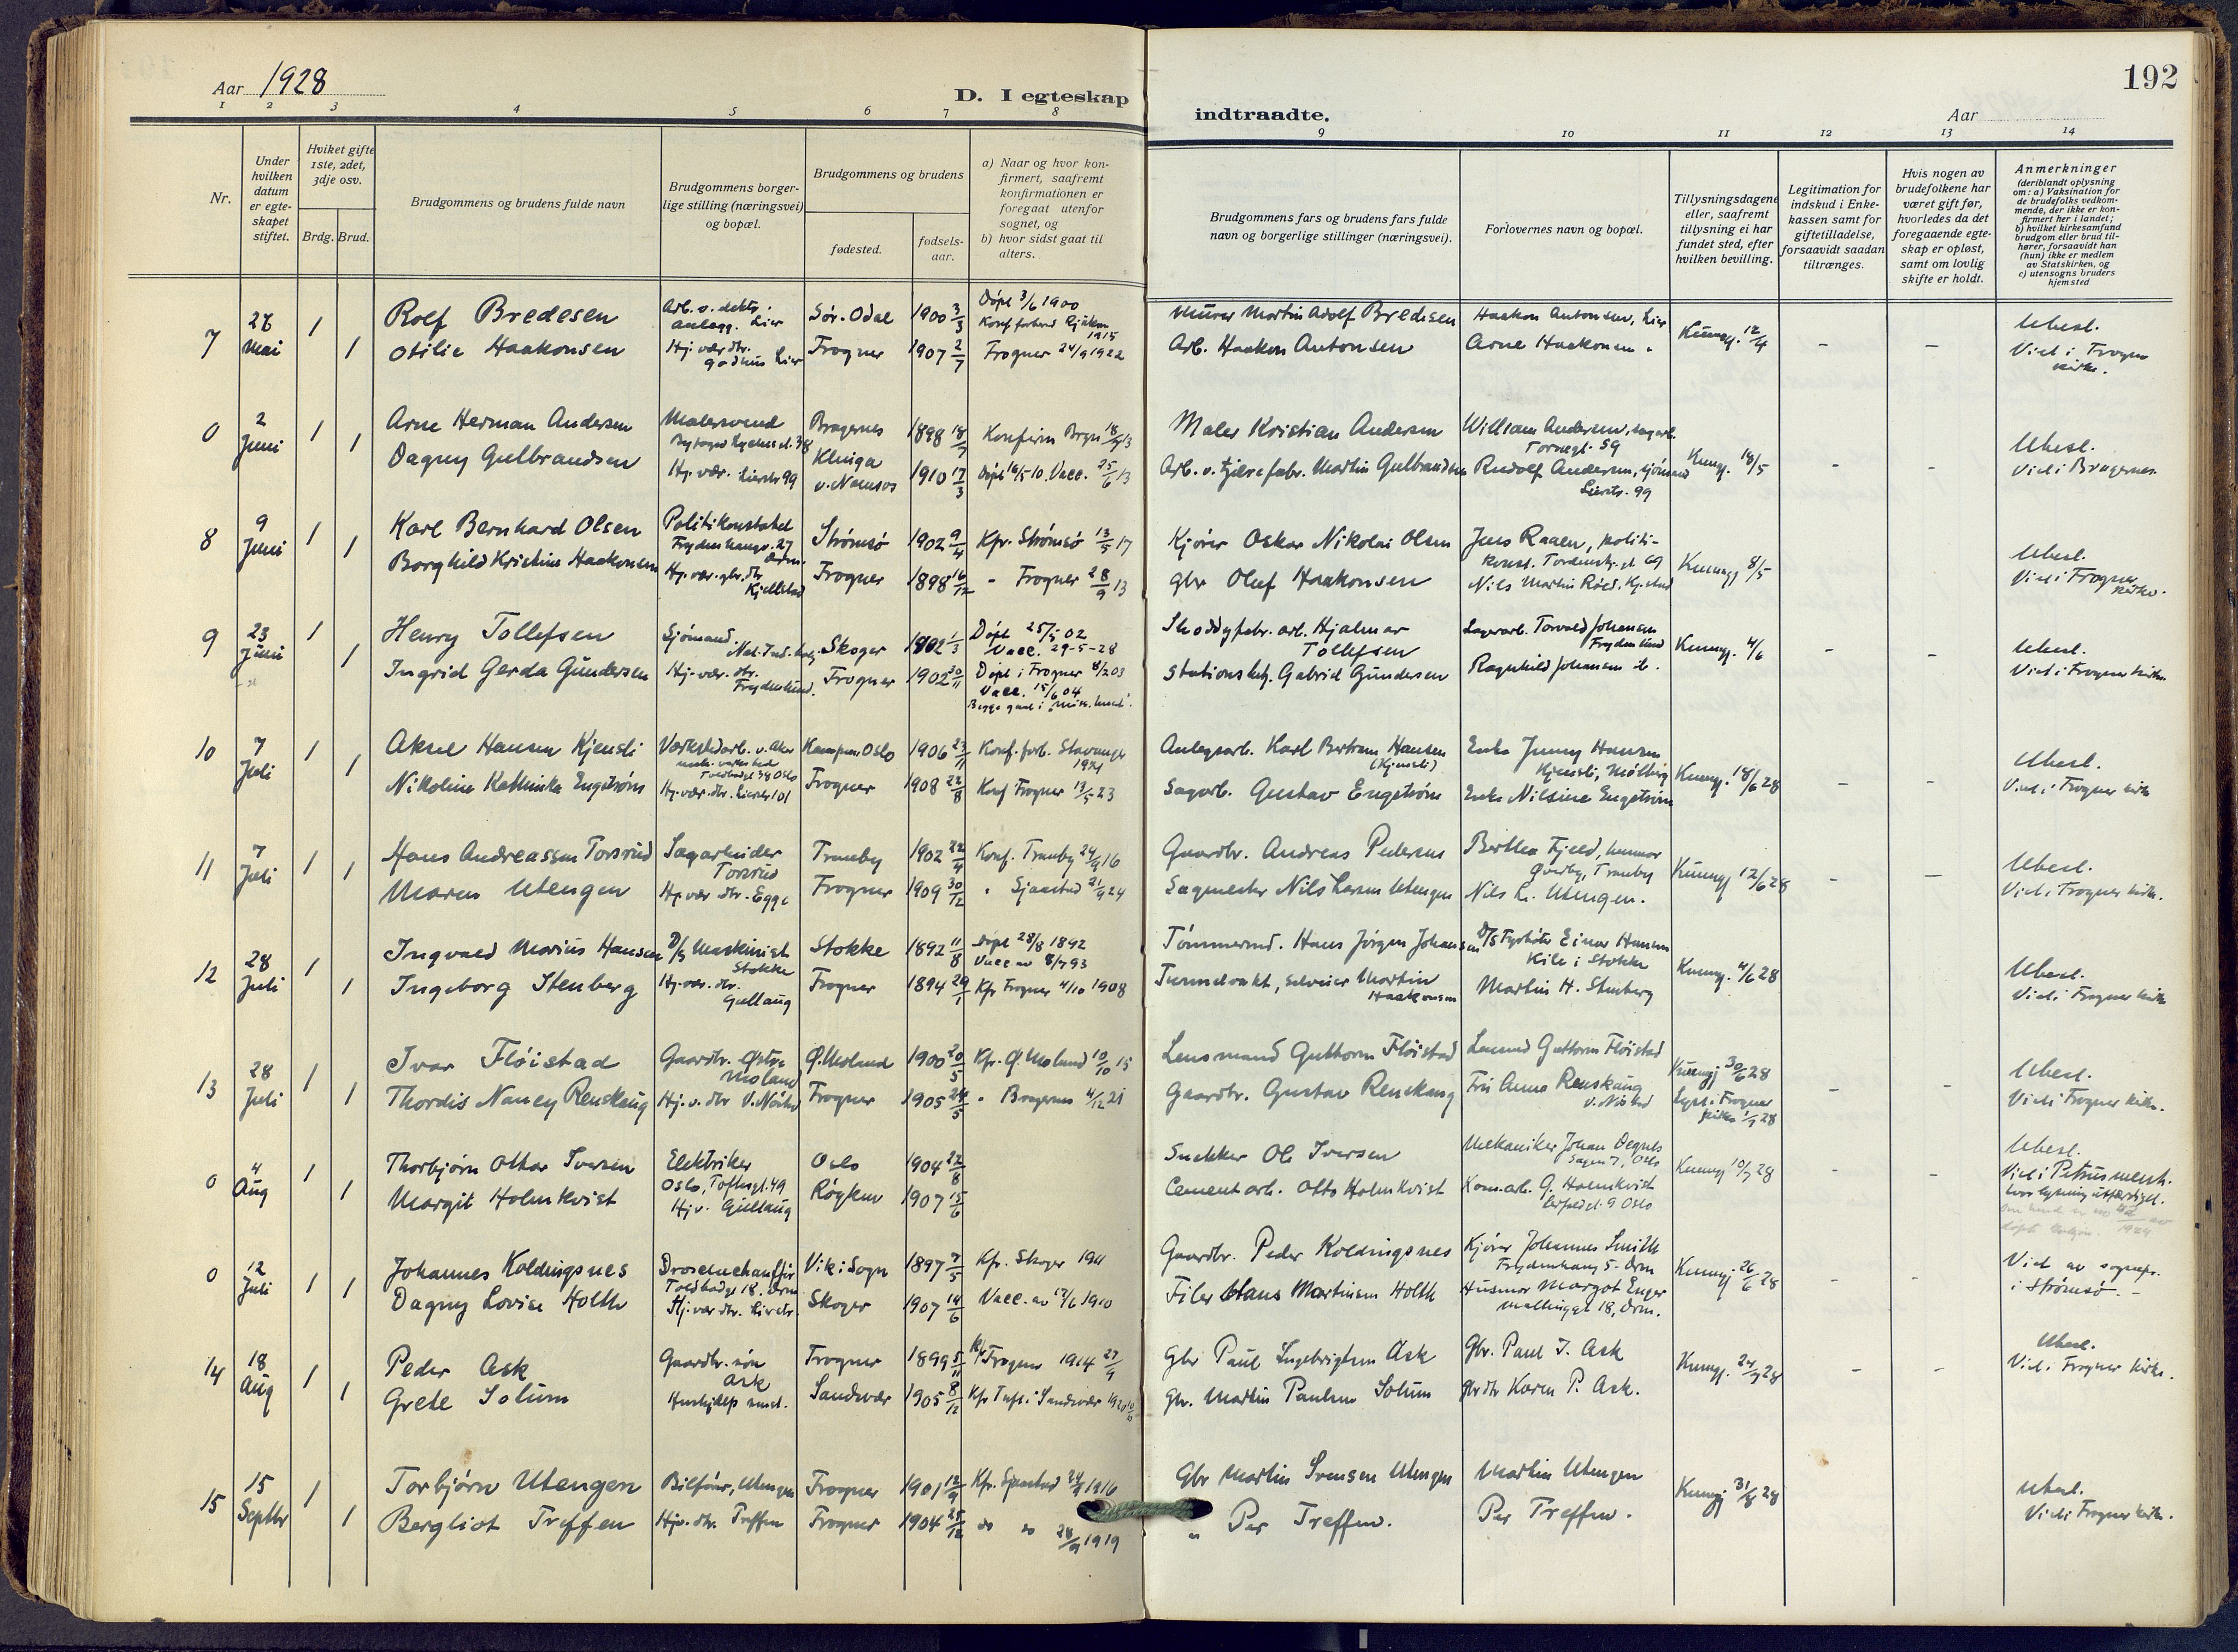 Aar 1928
D. I egteskap
indtraadte.
Aar
192
1 2 3 4 5 6 7 8 9 10 11 12 13 14
Nr.
Under hvilken datum er egte-skapet stiftet.
Hviket gifte 1ste, 2det, 3dje osv.
Brdg. Brud.
Brudgommens og brudens fulde navn
Brudgommens borger-
lige stilling (næringsvei)
og bopæl.
Brudgommens og brudens
fødested.
fødsels-
aar.
a) Naar og hvor kon-
firmert, saafremt
konfirmationen er
foregaat utenfor
sognet, og
b) hvor sidst gaat til
alters.
Brudgommens fars og brudens fars fulde
navn og borgerlige stillinger (næringsvei).
Forlovernes navn og bopæl.
Tillysningsdagene
eller, saafremt
tillysning ei har
fundet sted, efter
hvilken bevilling.
Legitimation for
indskud i Enke-
kassen samt for
giftetilladelse,
forsaavidt saadan
tiltrænges.
Hvis nogen av
brudefolkene har
været gift før,
hvorledes da det
foregaaende egte-
skap er opløst,
samt om lovlig
skifte er holdt.
Anmerkninger
(deriblandt oplysning
om: a) Vaksination for
de brudefolks vedkom-
mende, der ikke er kon-
firmert her i landet;
b) hvilket kirkesamfund
brudgom eller brud til-
hører, forsaavidt han
(hun) ikke er medlem
av Statskirken, og
c) utensogns bruders
hjemsted
7 Mai 1 Rolf Bredesen Sør-Odal 1900 3/3 Døpt 3/6 1900 Murer Martin Adolf Bredesen Haakon Antonsen, Lier Kunngj. 12/4 Ubesl.
1 Otilie Haakonsen Hj. vær. dtr. Lier Frogner 1907 2/7 Frogner 24/9 1922 Arb. Haakon Antonsen Arne Haakonsen Viet i Frogner kirke.
0 2 Juni 1 Arne Herman Andersen Malersvend Bragernes 1898 18/7 Konfirm Brgn Maler Kristian Andersen William Andersen Torvegt. 59 Kunngj. 18/5 Ubesl.
1 Dagny Gulbrandsen Hj. vær. Lierstr 99 v. Namsos 1910 17/3 Døpt 16/5 10. Vacc. 25/6 13 Arb. v. tjærefabr. Martin Gulbrandsen Rudolf Andersen, sjømand Lierstr. 99 Viet i Bragernes
8 9 Juni 1 Karl Bernhard Olsen Politikonstabel Strømsø 1902 9/4 Kfr. Strømsø 13/5 17 Kjører Oskar Nikolai Olsen Jens Raaen, politi- konst. Kunngj 8/5 Ubesl.
1 Borghild Kristine Haakonsen Hj. vær. gbr. dtr Kjellstad Frogner 1898 16/12 - Frogner 28/9 13 gbr Oluf Haakonsen Nils Martin Røed, Viet i Frogner kirke.
9 23 Juni 1 Henry Tollefsen Sjømand Skoger 1902 1/3 Døpt 25/5 02 Vacc. 29-5-28 Shoddyfabr. arb. Hjalmar Tollefsen Lagerarb. Torvald Johansen Frydenlund Kunngj. 4/6 Ubesl.
1 Ingrid Gerda Gundersen Hj. vær. dtr. Frydenlund. Frogner 1902 30/11 Døpt i Frogner 8/2 03 Vacc. 15/6 04 Stationsbetj. Gabriel Gundersen Ragnhild Johansen Viet i Frogner kirke
10 7 Juli 1 Aksel Hansen Kjensli Kampen Oslo 1906 23/11 Konf. forb. Stavanger 1921 Anlegsarb. Karl Bertram Hansen (Kjensli) Enke Jenny Hansen Kjensli, Kunngj. 18/6 28 Ubesl.
1 Nikoline Kathinka Engstrøm Hj. vær. dtr. Lierstr 101 Frogner 1908 22/8 Konf Frogner 13/5 23 Sagarb. Gustav Engstrøm Enke Nilsine Engstrøm Viet i Frogner kirke
11 7 Juli 1 Hans Andreassen Torsrud Sagarbeider Torsrud Tranby 1902 22/4 Konf. Tranby 24/9 16 Gaardbr. Andreas Pedersen Berthea Fjeld, Tranby Kunngj 12/6 28 Ubesl.
1 Maren Utengen Hj. vær dtr. Egge Frogner 1909 30/12 Sjaastad 21/9 24 Sagmester Nils Larsen Utengen Nils L. Utengen. Viet i Frogner kirke.
12 28 Juli 1 Ingvald Marius Hansen D/S Maskinist Stokke Stokke 1892 11/8 Døpt 28/8 1892 Vacc av 8/7 93 Tømmermd. Hans Jørgen Johansen D/S Fyrbøter Einar Hansen Kile i Stokke Kunngj. 4/6 28 Ubesl.
1 Ingeborg Stenberg Hj. vær. dtr. Gullaug Frogner 1894 29/1 Kfr Frogner 4/10 1908 Tunnelvakt, Martin Haakonsen Martin H. Stenberg Viet i Frogner kirke
13 28 Juli 1 Ivar Fløistad Gaardbr. Østre Moland Ø. Moland 1900 20/5 Kfr. Ø. Moland 10/10 15 Lensmand Guttorm Fløistad Lensmd Guttorm Fløistad Kunngj 30/6 28 Ubesl.
1 Thordis Nancy Renskaug Hj. v. dtr Frogner 1905 Bragernes 4/12 21 Gaardbr. Gustav Renskaug Frk Anna Renskaug Lyst i Frogner kirke 1/7 28 Viet i Frogner kirke.
0 4 Aug 1 Thorbjørn Ottar Iversen Elektriker Oslo, Toftesgt. 49 Oslo 1904 22/8 Snekker Ole Iversen Mekaniker Johan Degnes Oslo Kunngj 10/7 28 Ubesl.
1 Margit Holmkvist Hj. v. Gullaug Røyken 1907 15/6 Cementarb. Otto Holmkvist Kom. arb. O. Holmkvist Oslo Viet i Petrus menh.
0 12 Juli 1 Johannes Koldingsnes Drosjechauffør Vik i Sogn 1897 7/5 Kfr. Skoger 1911 Gaardbr. Peder Koldingsnes Kjører Johannes Smith Kunngj 26/6 28 Viet av sognepr. i Strømsø. -
1 Dagny Lovise Holth Hj. vær dtr. Lierstr. Skoger 1907 14/6 Vacc. av 17/6 1910 Filer Hans Martinsen Holth Husmor Margot Enger
14 18 Aug 1 Peder Ask Gaardbr. søn Ask Frogner 1899 5/11 Kfr Frogner 1914 27/9 Gbr Paul Ingebrigtsen Ask Gbr. Paul I. Ask Kunngj. 24/7 28 Ubesl.
1 Grete Solum Sandsvær 1905 8/12 Kfr Tuft i Sandsvær 1920 Gbr. Martin Paulsen Solum gbr dtr Karen P. Ask. Viet i Frogner kirke.
15 15 Septbr 1 Torbjørn Utengen Bilfører, Utengen Frogner 1901 12/9 Kfr. Sjaastad 24/9 1916 Gbr Martin Svensen Utengen Martin Utengen Kunngj 31/8 28 Ubesl.
1 Bergliot Treffen Hjv. dtr. Treffen Frogner 1904 25/12 do do 28/9 1919 " Per Treffen. Per Treffen. Viet i Frogner kirke.